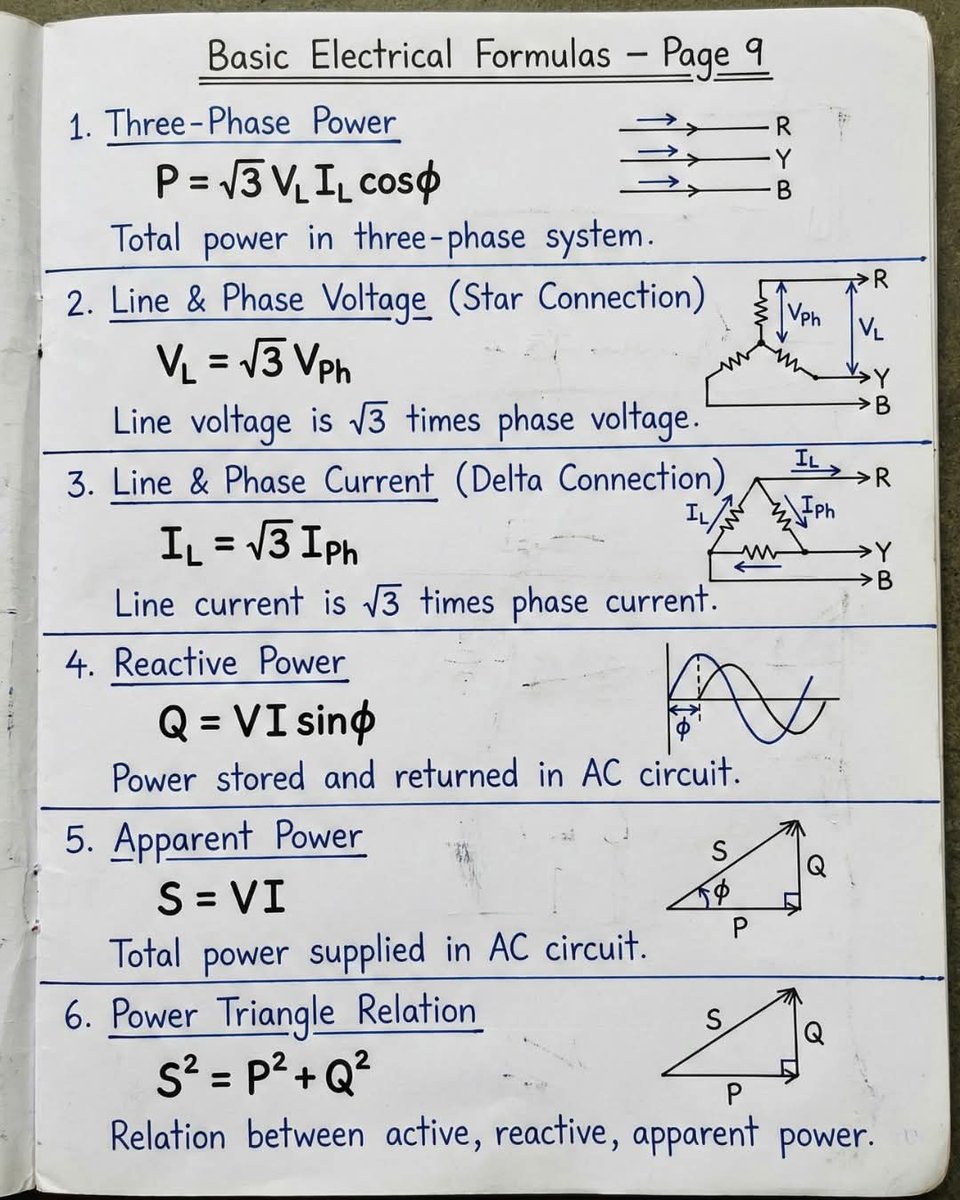 Basic Electrical Formulas – Page 9
1. Three-Phase Power
P = √3 V_L I_L cosϕ
R
Y
B
Total power in three-phase system.
2. Line & Phase Voltage (Star Connection)
V_L = √3 V_Ph
Line voltage is √3 times phase voltage.
R
V_Ph
V_L
Y
B
3. Line & Phase Current (Delta Connection)
I_L = √3 I_Ph
Line current is √3 times phase current.
I_L
R
I_L
I_Ph
Y
B
4. Reactive Power
Q = VI sinϕ
Power stored and returned in AC circuit.
ϕ
5. Apparent Power
S = VI
Total power supplied in AC circuit.
S
ϕ
Q
P
6. Power Triangle Relation
S² = P² + Q²
Relation between active, reactive, apparent power.
S
Q
P